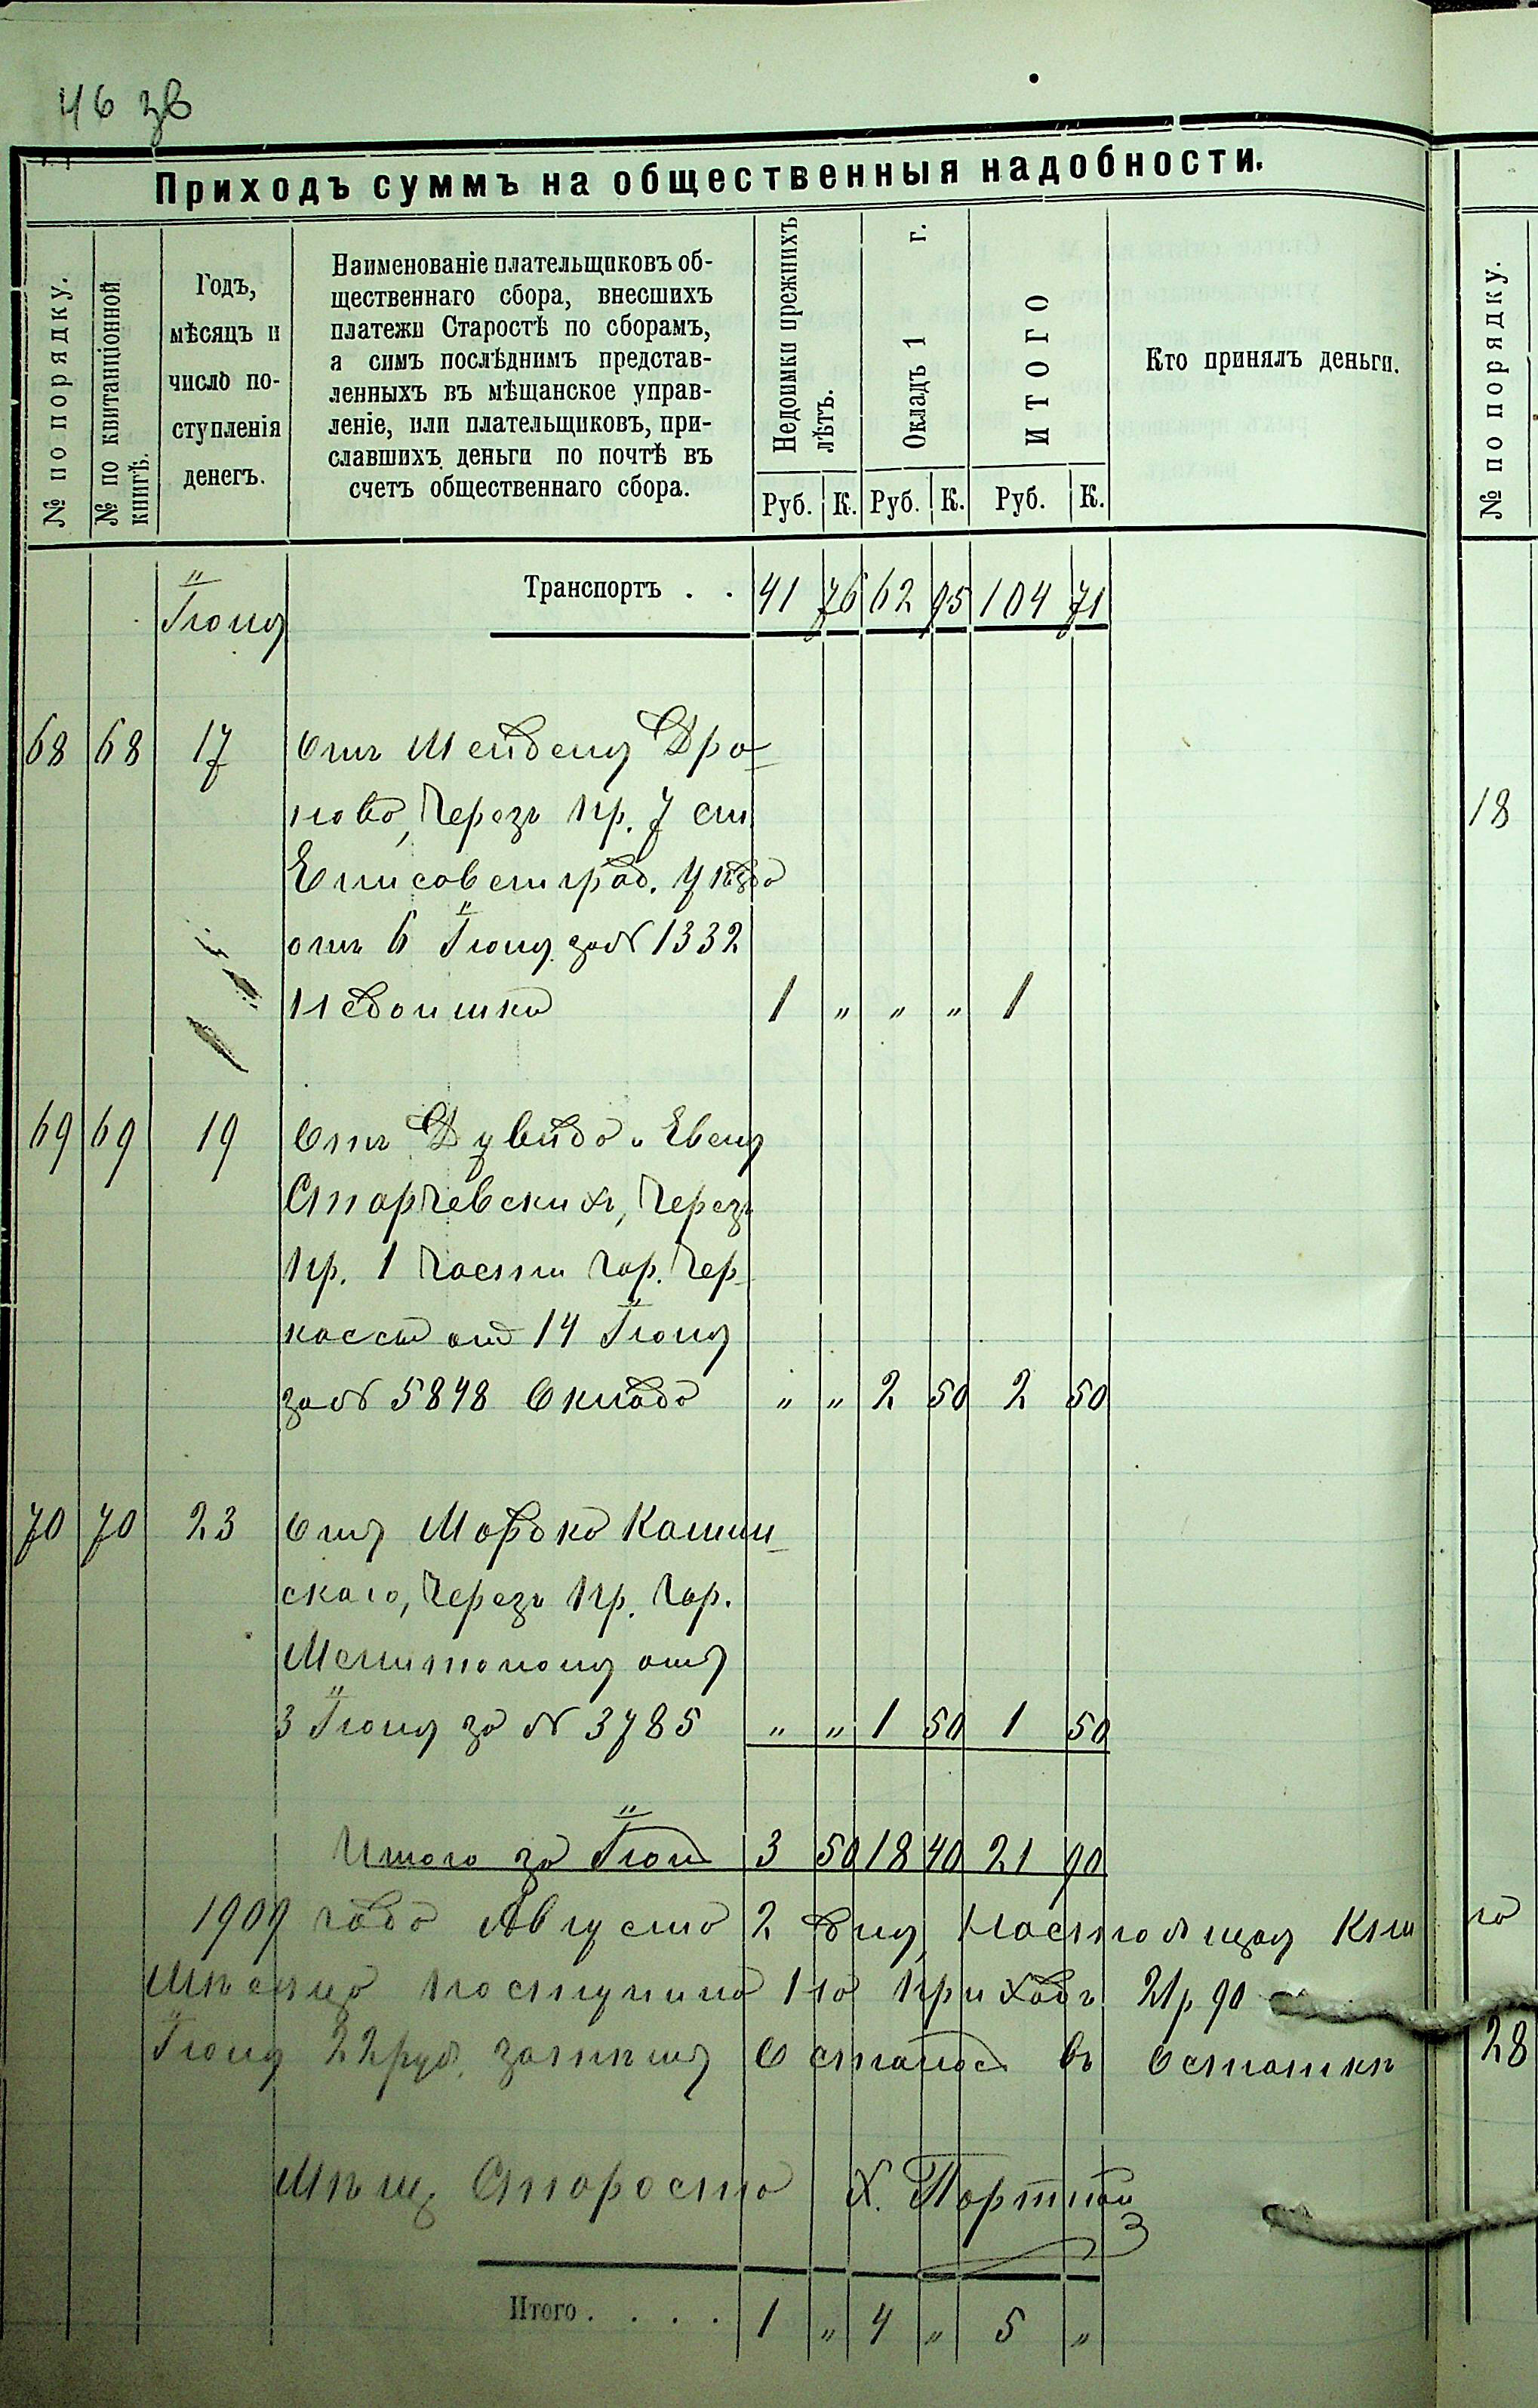 46 зв
Приходъ суммъ на общественныя надобности.
№ по порядку.
№ по квитанціонной книгѣ.
Годъ,
мѣсяцъ и
число по-
ступленія
денегъ.
Наименованіе плательщиковъ об-
щественнаго сбора, внесшихъ
платежи Старостѣ по сборамъ,
а симъ послѣднимъ представ-
ленныхъ въ мѣщанское управ-
леніе, или плательщиковъ, при-
славшихъ деньги по почтѣ въ
счетъ общественнаго сбора.
Недоимки прежнихъ лѣтъ.
Окладъ 1 г.
ИТОГО
Кто принялъ деньги.
Руб. К. Руб. К. Руб. К.
№ по порядку.
Іюня Транспортъ . . 41 76 62 95 104 71
68 68 17 Отъ Менделя Дро-
нова, Черезъ Пр. 7 ст.
18
Елисаветград. Уѣзда
отъ 6 Іюня за № 1332
Недоимка 1 " " " 1
69 69 19 Отъ Дувида и Евеля
Старчевскихъ, Черезъ
Пр. 1 Части Гор. Чер-
кассы отъ 14 Іюня
за № 5848 Оклада " " 2 50 2 50
70 70 23 Отъ Мордко Камин-
скаго, Черезъ Пр. Гор.
Мелитополя отъ
3 Іюня за № 3785 " " 1 50 1 50
Итого за Іюнь 3 50 18 40 21 90
1909 года Августа 2 дня, Настоящая Кни
Мѣсяца поступило на приходъ 21 р 90
Іюня 22 руб. затѣмъ Осталось въ Остаткѣ
28
Мѣщ. Староста Х. Портной
Итого . . . . 1 " 4 " 5 "